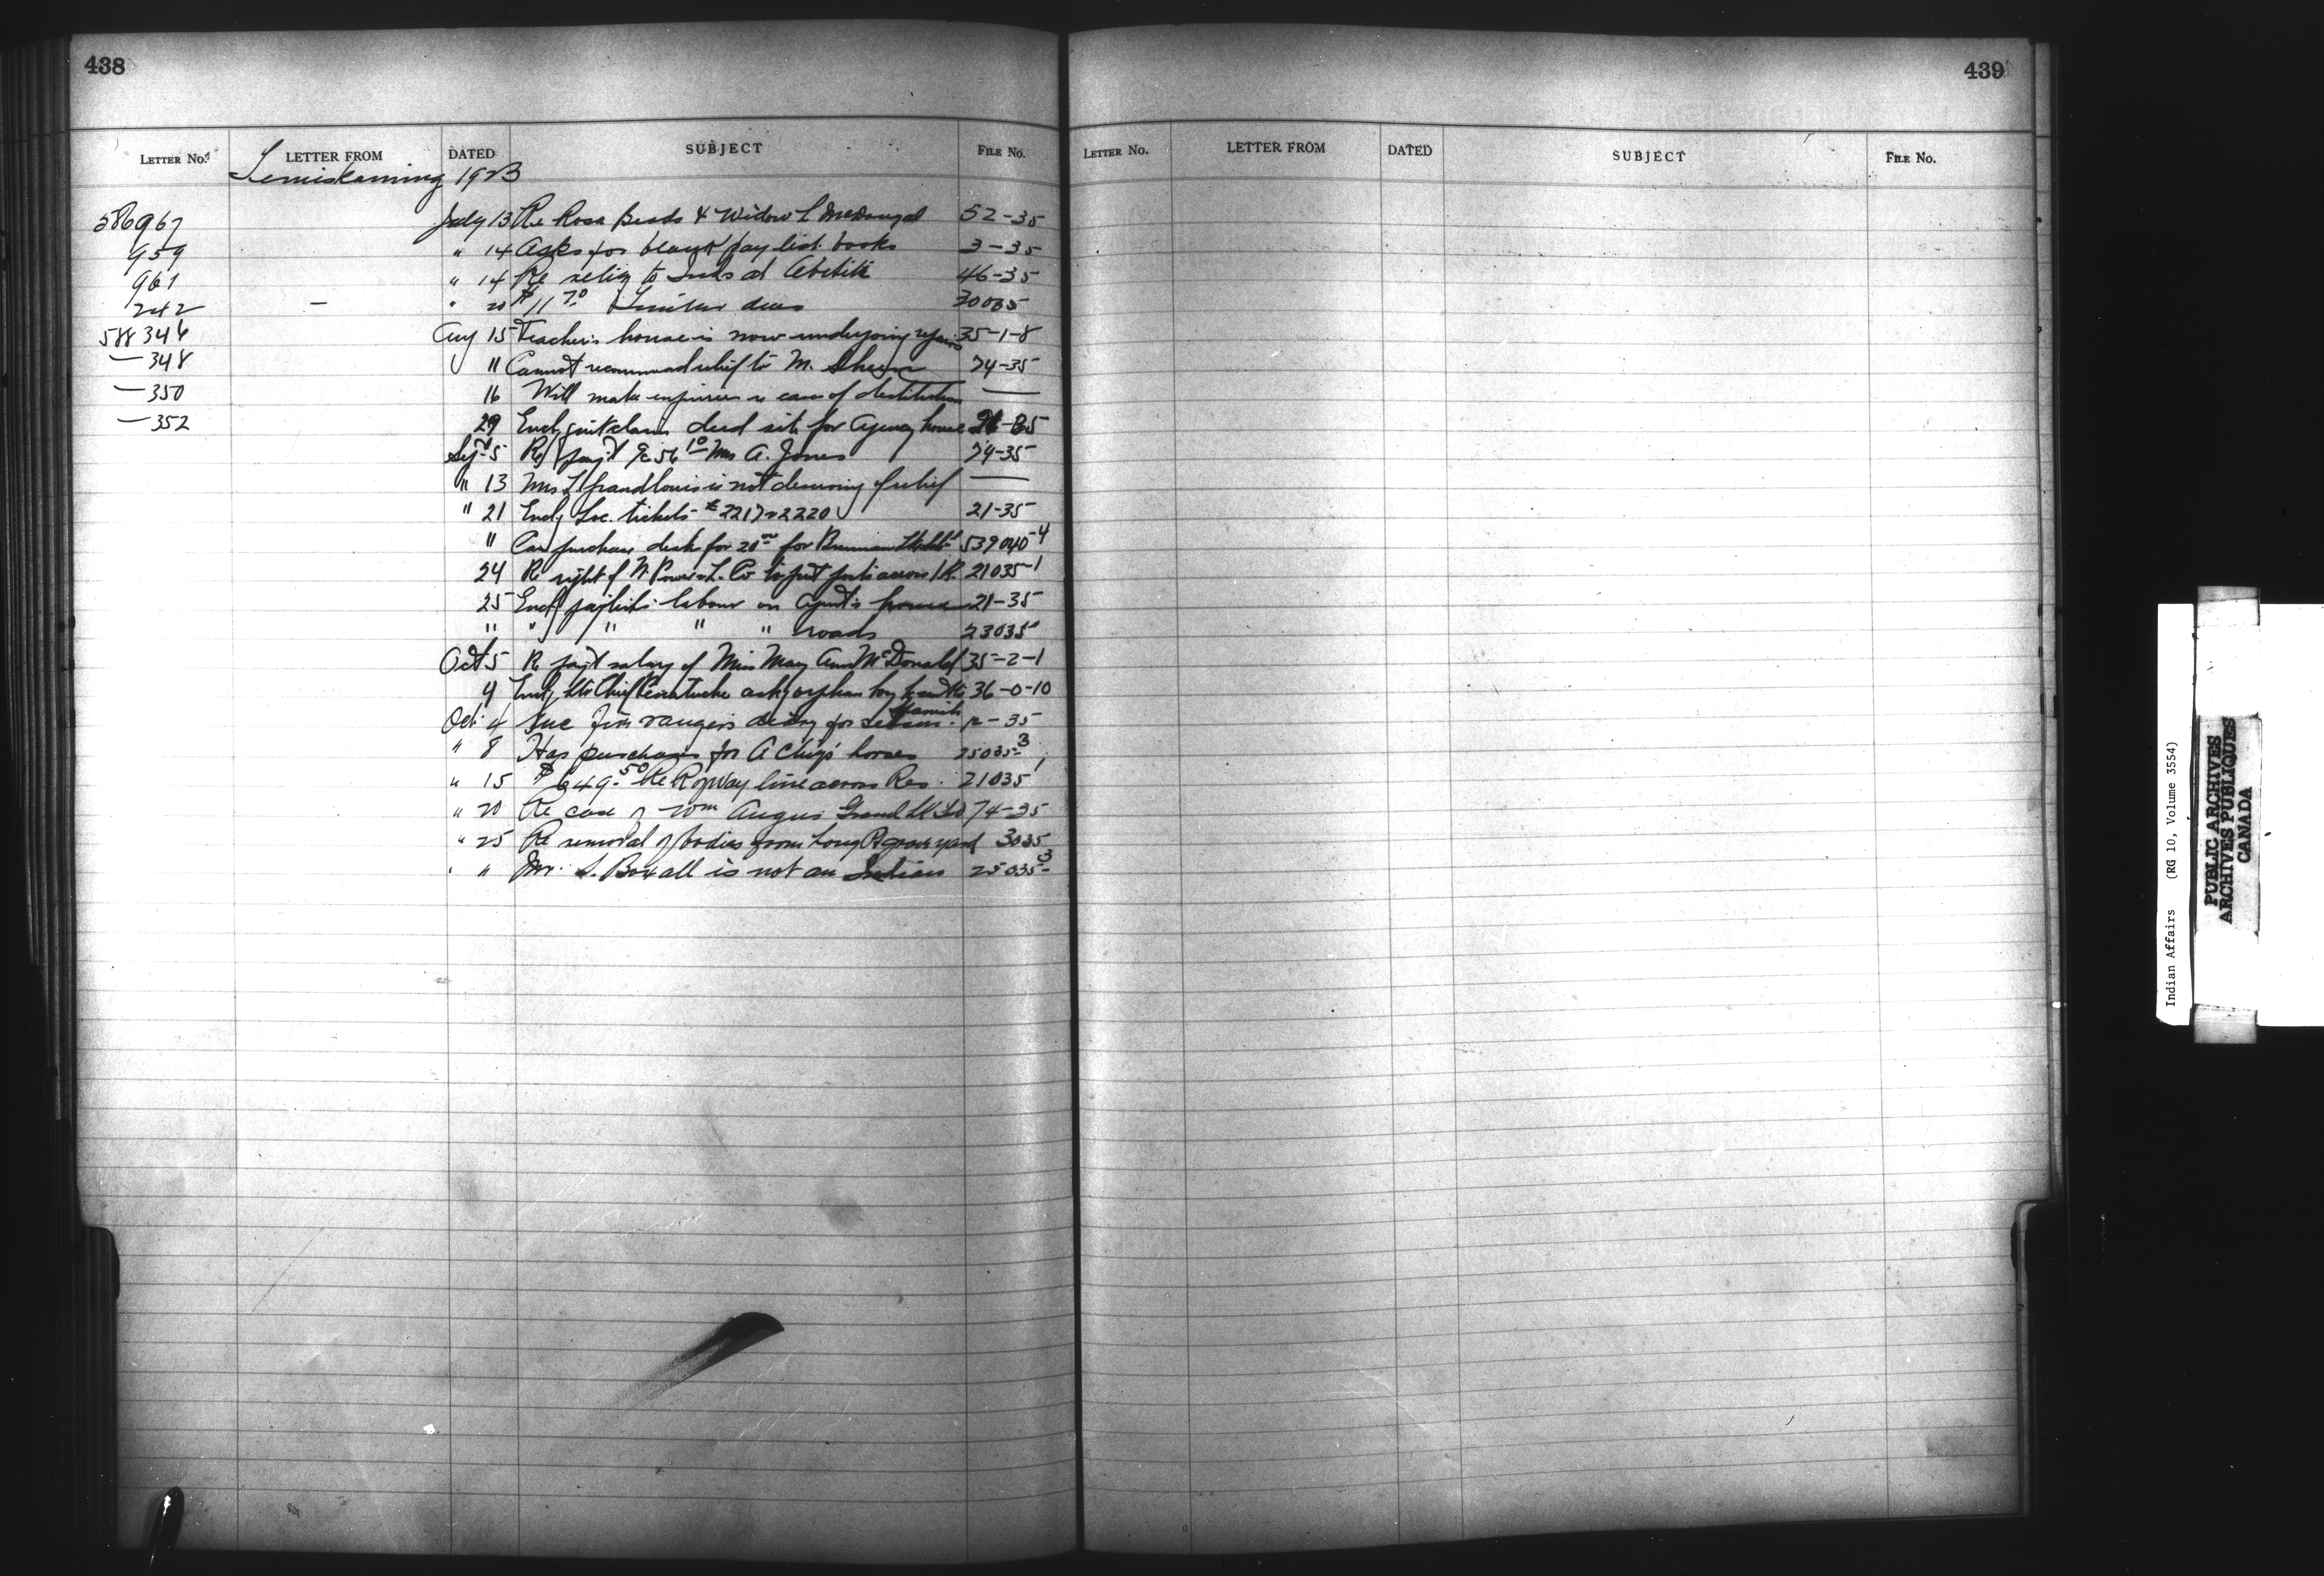 438
LETTER NO. LETTER FROM DATED SUBJECT FILE NO.
Temiskaming 1923
586967 July 13 Re Rosa Beads & Widow L McDougal 52-35
959 " 14 Asks for blank pay list books 3-35
961 " 14 Re relig to Inds at Abitibi 46-35
242 — " 20 $11 70 Timber dues 30035
588346 Aug 15 Teacher's house is now undergoing repairs 35-1-8
— 348 " Cannot recommend relief to M. 74-35
— 350 16 Will make inquiries re case of destitution —
— 352 29 Encl quit claim deed site for Agency house 21-35
Sept 5 Re payt a/c 56 10 Mrs A. Jones 74-35
" 13 Mrs L Grandlouis is not deserving of relief —
" 21 Encl Loc. tickets # 2217 2220 21-35
" Can purchase desk for 20 00 for 539040-4
24 Re right of N. Power & L. Co to put posts across I.R. 21035-1
25 Encl paylists labour on Agent's house 21-35
" " " " " roads 23035
Oct 5 Re payt salary of Miss May Ann McDonald 35-2-1
9 Encl ltr Chief asks orphan boy 36-0-10
Oct 4 Enc Fire rangers diary for 12-35
" 8 Has purchases for A Chiyi horses 25035-3
" 15 $649.50 Re R of Way line across Res. 21035 1
" 20 Re case of Wm Angus Grand Lk 74-35
" 25 Re removal of bodies from Long Pt graveyard 3035
" " Mr. S. Boxall is not an Indian 25035-3
439
LETTER NO. LETTER FROM DATED SUBJECT FILE NO.
Indian Affairs (RG 10, Volume 3554)
PUBLIC ARCHIVES
ARCHIVES PUBLIQUES
CANADA